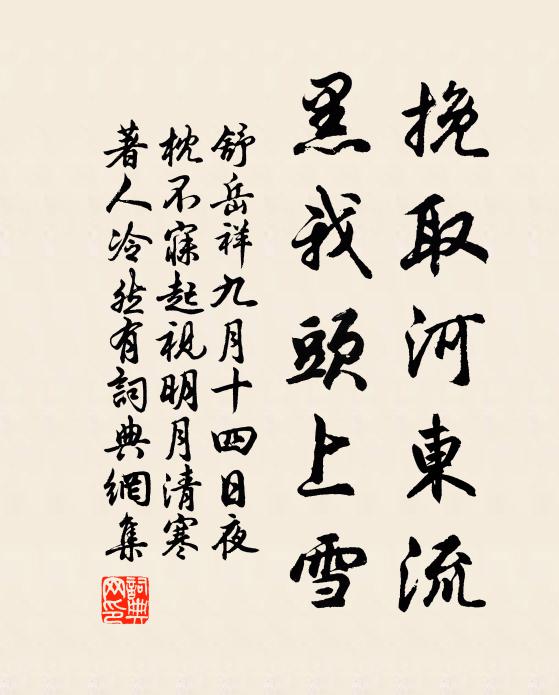 挽取河東流
黑我頭上雪
舒岳祥九月十四日夜
枕不寐起視明月清寒
著人冷然有詞典網集
詞典網印